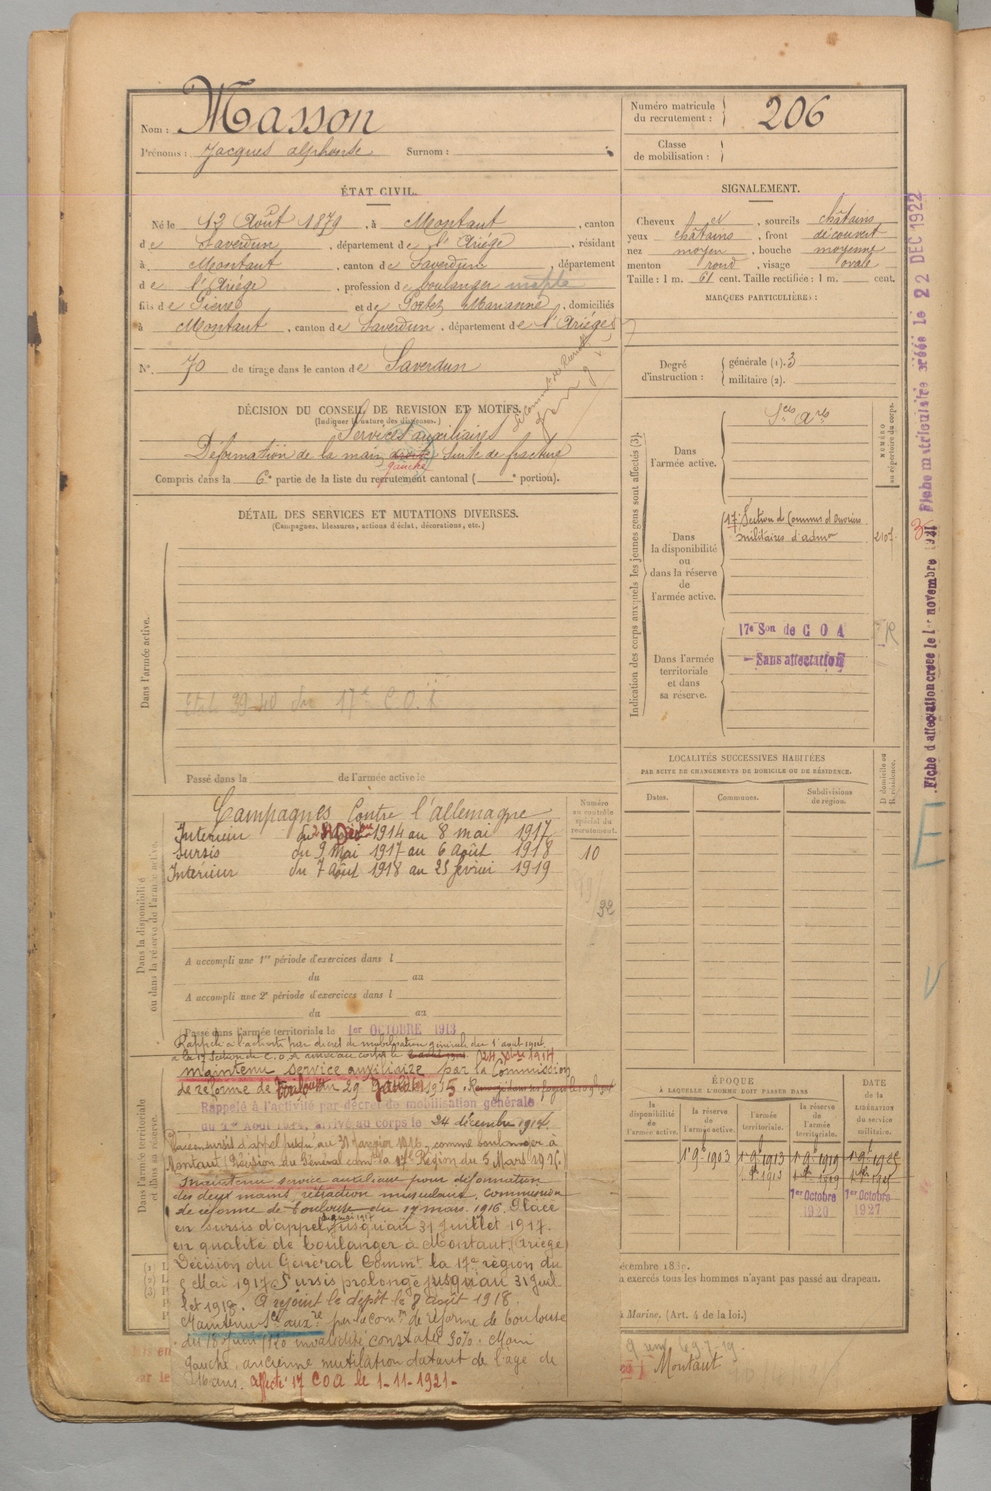 Nom : Masson
Prénoms : Jacques alphonse Surnom :
Numéro matricule du recrutement : 206
Classe de mobilisation :
ÉTAT CIVIL.
Né le 13 Août 1879, à Montaut, canton
de Saverdun, département de l'Ariége, résidant
à Montaut, canton de Saverdun, département
de l'Ariége, profession de boulanger
fils de Pierre et de Marianne, domiciliés
à Montaut, canton de Saverdun, département de l'Ariége
N° 70 de tirage dans le canton de Saverdun
SIGNALEMENT.
Cheveux, sourcils châtains
yeux châtains, front découvert
nez moyen, bouche moyenne
menton rond, visage ovale
Taille : 1 m. 61 cent. Taille rectifiée : 1 m. cent.
MARQUES PARTICULIÈRES :
Degré d'instruction : générale (1). 3
militaire (2).
DÉCISION DU CONSEIL DE REVISION ET MOTIFS.
(Indiquer la nature des dispenses.)
Services auxiliaires
Déformation de la main droite Suite de fracture
gauche
Compris dans la 6e partie de la liste du recrutement cantonal ( e portion).
DÉTAIL DES SERVICES ET MUTATIONS DIVERSES.
(Campagnes, blessures, actions d'éclat, décorations, etc.)
Dans l'armée active.
Passé dans la de l'armée active le
Indication des corps auxquels les jeunes gens sont affectés (3).
NUMÉRO au répertoire du corps.
Dans l'armée active.
Dans la disponibilité ou dans la réserve de l'armée active.
17e Section de Commis et ouvriers
militaires d'admon
2107
Dans l'armée territoriale et dans sa réserve.
17e Son de C O A
Sans affectation
LOCALITÉS SUCCESSIVES HABITÉES
PAR SUITE DE CHANGEMENTS DE DOMICILE OU DE RÉSIDENCE.
Dates. Communes. Subdivisions de région. D domicile ou R résidence.
Dans la disponibilité ou dans la réserve de l'armée active.
Campagnes Contre l'allemagne
Intérieur du 1914 au 8 mai 1917
Sursis du 9 Mai 1917 au 6 Août 1918
Intérieur du 7 Août 1918 au 25 février 1919
Numéro au contrôle spécial du recrutement.
10
A accompli une 1re période d'exercices dans l
du au
A accompli une 2e période d'exercices dans l
du au
Passé dans l'armée territoriale le 1er OCTOBRE 1913
Rappelé à l'activité par décret de mobilisation générale du 1 août 1914
Maintenu service auxiliaire par la Commission
de réforme de Toulouse du 29 Janvier 1915.
Rappelé à l'activité par décret de mobilisation générale
du 1er Août 1914, arrivé au corps le 24 décembre 1914.
Placé en sursis d'appel jusqu'au 31 Janvier 1916, comme boulanger à
Montaut (Décision du Général comt la 17e Région du 5 Mars 1916)
Maintenu service auxiliaire pour déformation
des deux mains, rétraction musculaire, commission
de réforme de Toulouse du 17 mars 1916. Placé
en sursis d'appel jusqu'au 31 juillet 1917.
en qualité de boulanger à Montaut (Ariége)
Décision du Général Commt la 17e région du
5 Mai 1917. Sursis prolongé jusqu'au 31 Juil
let 1918. A rejoint le dépôt le 8 août 1918.
Maintenu Sce auxre par la com on de réforme de Toulouse
invalidité constatée 30%. Main
Gauche, ancienne mutilation datant de l'âge de
16 ans. Affecté 17 COA le 1-11-1921-
Dans l'armée territoriale et dans sa réserve.
ÉPOQUE
À LAQUELLE L'HOMME DOIT PASSER DANS
la disponibilité de l'armée active. la réserve de l'armée active. l'armée territoriale. la réserve de l'armée territoriale.
DATE de la LIBÉRATION du service militaire.
1er Octobre 1920
1er Octobre 1927
a exercés tous les hommes n'ayant pas passé au drapeau.
à Marine. (Art. 4 de la loi.)
Montaut
Fiche d'affectation créée le 1er novembre 1921
Fiche matriculaire créée le 22 DEC 1922